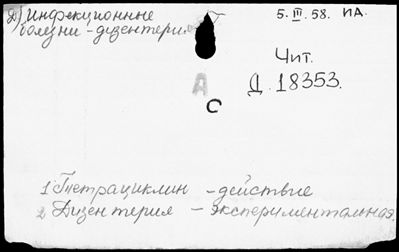 Д) инфекционные
болезни - дизентерия
5. III. 58. ИА.
Чит.
Д 18353.
А
С
1 Тетрациклин - действие
2 Дизентерия - экспериментальная